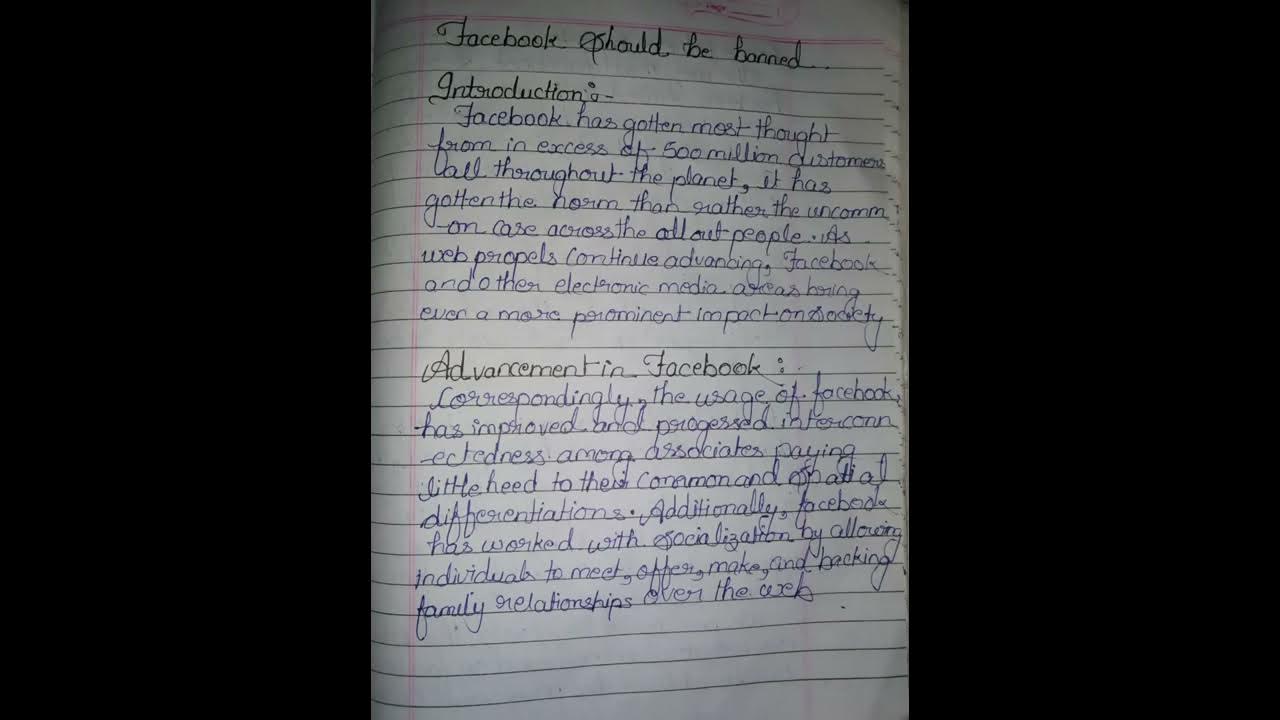 Facebook should be banned.
Introduction:-
Facebook has gotten most thought
from in excess of 500 million customers
all throughout the planet, it has
gotten the norm than rather the uncomm
-on case across the all out people. As
web propels continue advancing, Facebook
and other electronic media areas bring
even a more prominent impact on society
Advancement in Facebook :
Correspondingly, the usage of facebook,
has improved and progessed interconn
-ectedness among associates paying
little heed to their common and spatial
differentiations. Additionally, facebook
has worked with socialization by allowing
individuals to meet, offer, make, and backing
family relationships over the web